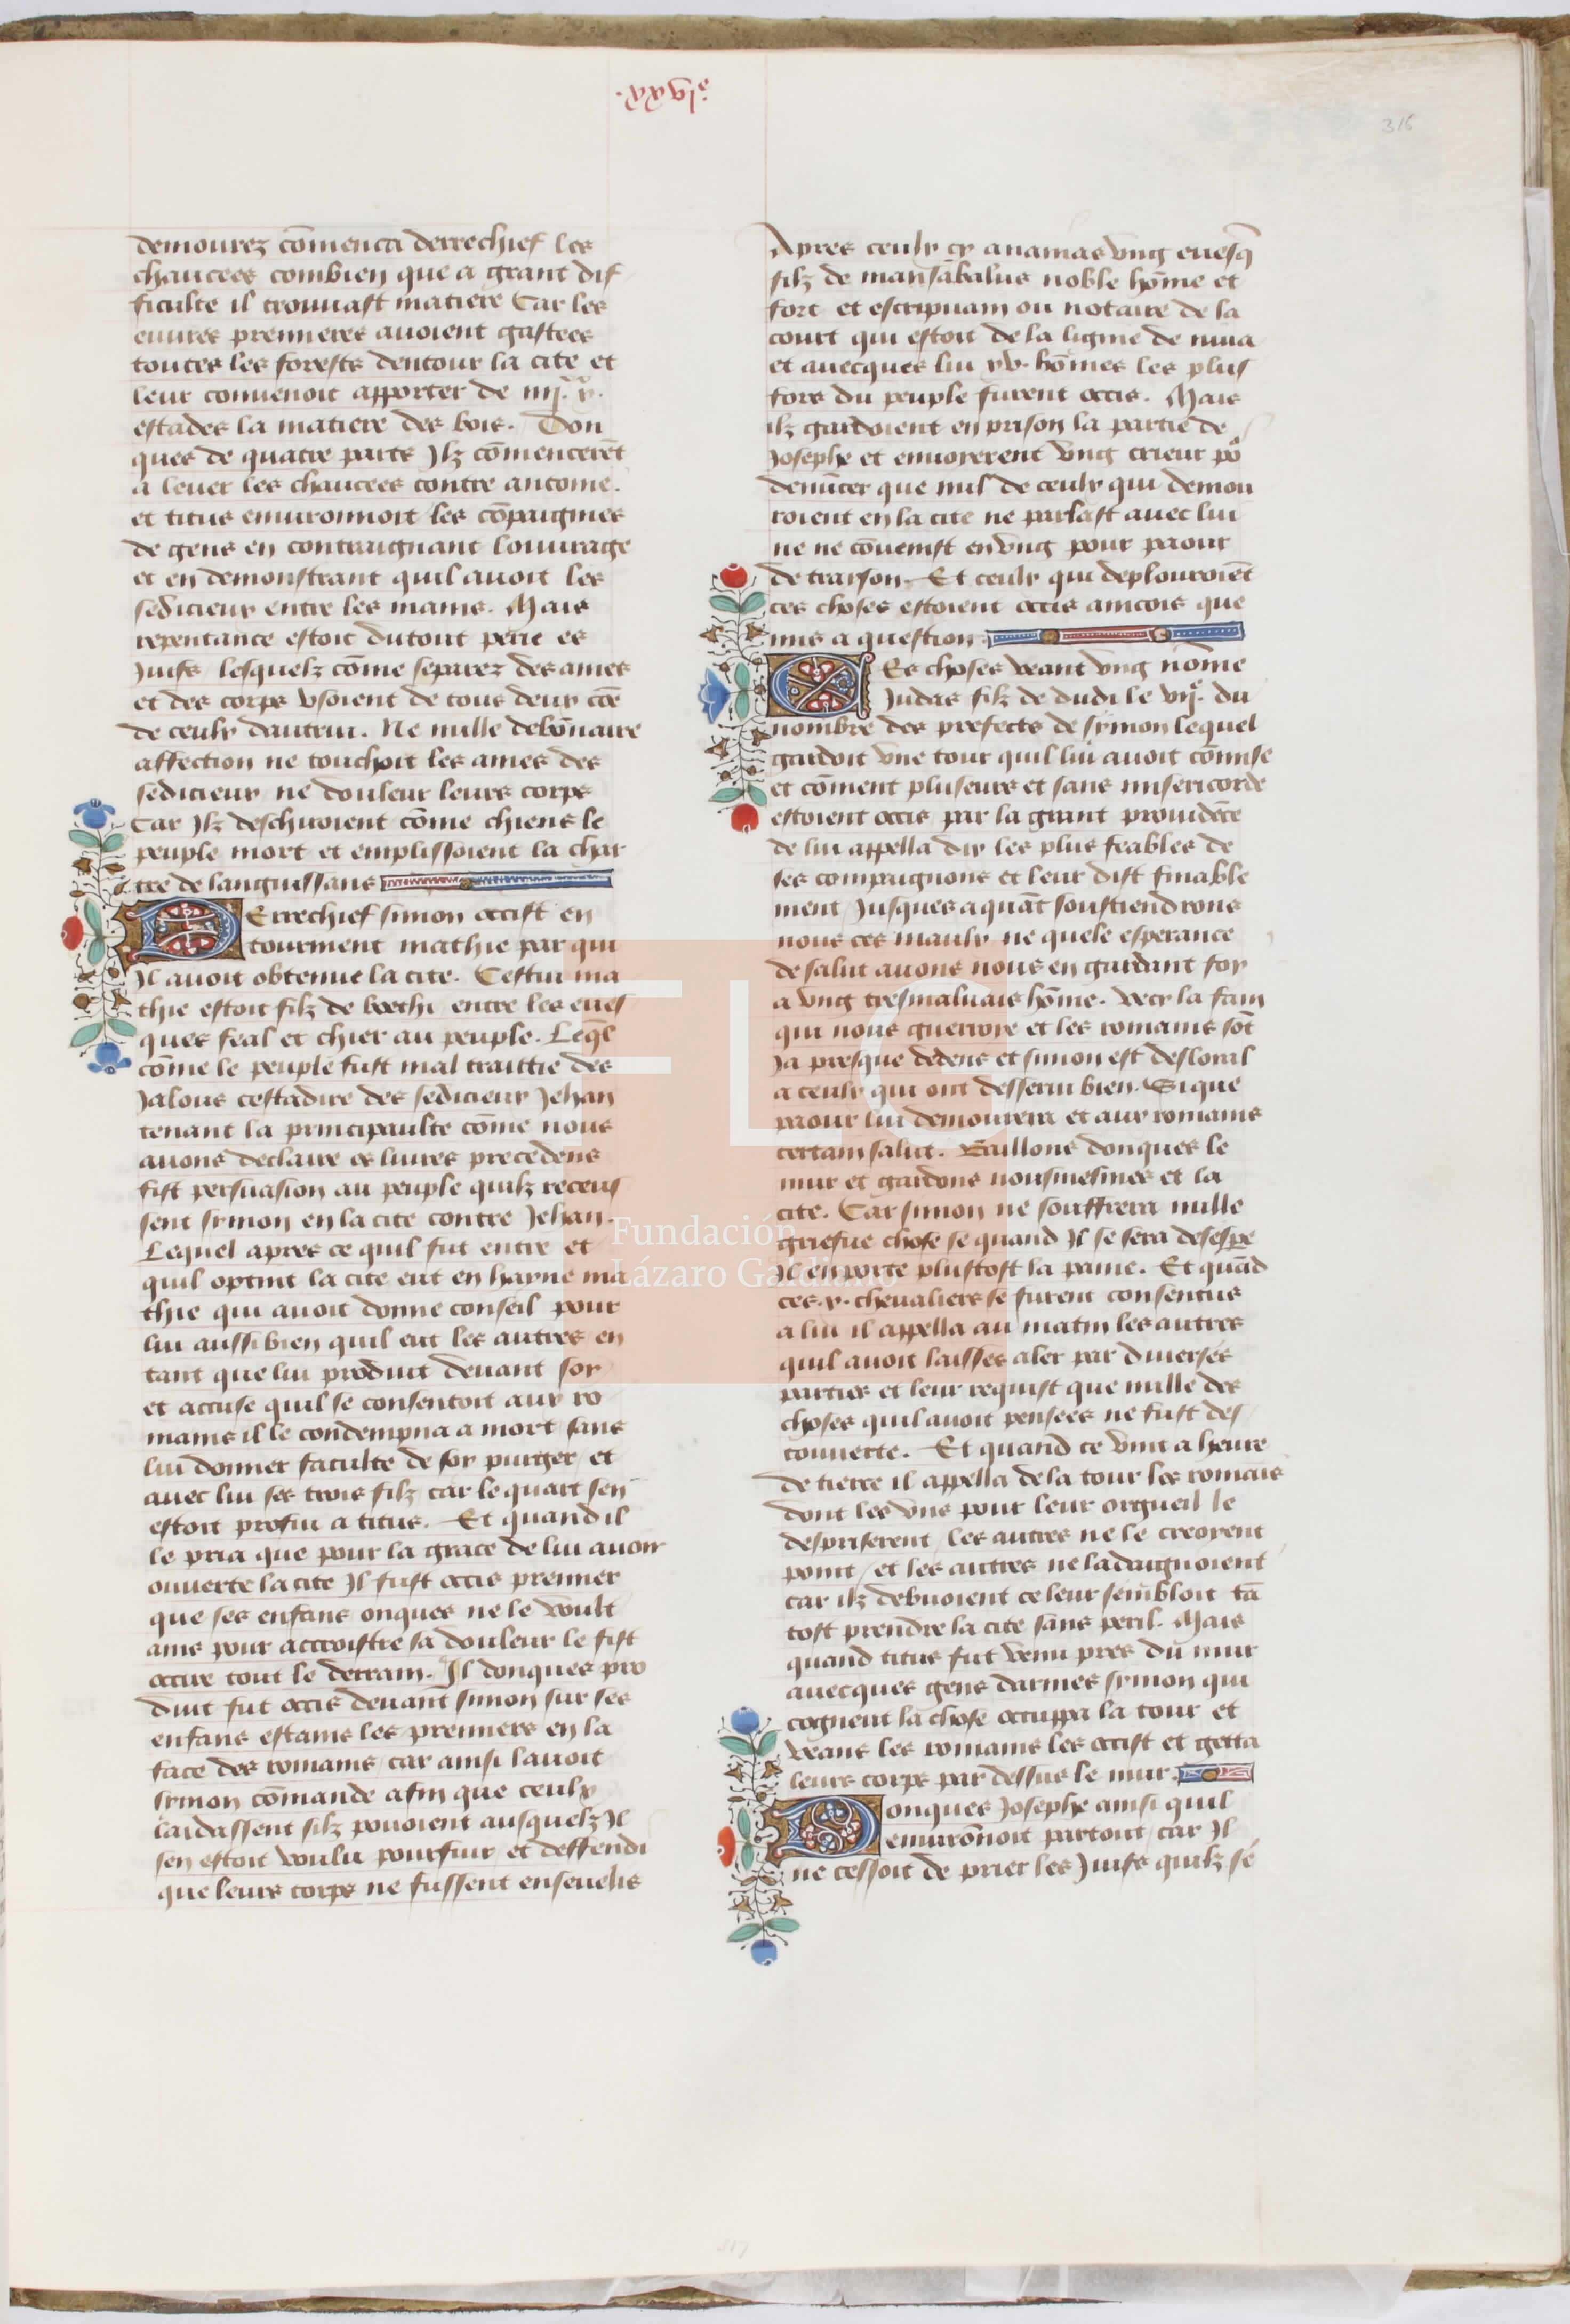 316
demourez cõmenca derrechief les
chaucees combien que a grant dif
ficulte il trouuast matiere Car les
euures premieres auoient gastees
toutes les forests dentour la cite et
leur conuenoit apporter de
estades la matiere des bois. Don
ques de quatre parts Ilz cõmencerẽt
a leuer les chaucees contre antoine.
et titus enuironnoit les cõpaignies
de gens en contraignant louurage
et en demonstrant quil auoit les
sedicieux entre les mains. Mais
repentance estoit dutout perie es
Juifs lesquelz cõme separez des ames
et des corps vsoient de tous deux cõe
de ceulx dautrui. Ne nulle debõnaire
affection ne touchoit les ames des
sedicieux ne douleur leurs corps
Car Ilz deschiroient cõme chiens le
peuple mort et emplissoient la char
tre de languissans
Errechief simon occist en
tourment mathie par qui
Il auoit obtenue la cite. Cestui ma
thie estoit filz de boethi entre les eues
ques feal et chier au peuple. Leq̃l
cõme le peuple fust mal traittie des
Jalous cestadire des sedicieux Jehan
tenant la principaulte cõme nous
auons declaire es liures precedens
fist persuasion au peuple quilz receus
sent symon en la cite contre Jehan.
Lequel apres ce quil fut entre et
quil optint la cite eut en hayne ma
thie qui auoit donne conseil pour
lui aussi bien quil eut les autres en
tant que lui produit deuant soy
et accuse quil se consentoit aux ro
mains il le condempna a mort sans
lui donner faculte de soy purger et
auec lui ses trois filz car le quart sen
estoit prefui a titus. Et quand il
le pria que pour la grace de lui auoir
ouuerte la cite Il fust occis premier
que ses enfans onques ne le voult
ains pour accroistre sa douleur le fist
occire tout le derrain. Il donques pro
duit fut occis deuant simon sur ses
enfans estains les premiers en la
face des romains car ainsi lauoit
symon cõmande afin que ceulx
laidassent silz pouoient ausquelz Il
sen estoit voulu pourfuir et deffendi
que leurs corps ne fussent enseuelis
Apres ceulx cy ananias vng euesq̃
filz de mansãbalus noble hõme et
fort et escripuain ou notaire de la
court qui estoit de la ligne de
et auecques lui xv. hõmes les plus
fors du peuple furent occis. Mais
ilz gardoient en prison la partie de
Josephe et enuoyerent vng crieur po
denũcer que nul de ceulx qui demou
roient en la cite ne parlast auec lui
ne ne cõuenist en vng pour paour
de traison. Et ceulx qui deplouroiẽt
ces choses estoient occis aincois que
mis a question.
Es choses veant vng nõme
Judas filz de dudi le vij.e du
nombre des prefects de symon lequel
gardoit vne tour quil lui auoit cõmise
et cõment pluseurs et sans misericorde
estoient occis par la grant prouidẽce
de lui appella dix les plus feables de
ses compaignons et leur dist finable
ment Jusques a quãt soustiendrons
nous ces maulx ne quele esperance
de salut auons nous en gardant foy
a vng tresmaluais hõme. Vecy la fam
qui nous guerroye et les romains sõt
Ja presque dedens et simon est desloyal
a ceulx qui ont desserui bien. Si que
paour lui demourera et aux romains
certain salut. Baillons donques le
mur et gardons nousmesmes et la
cite. Car simon ne souffrera nulle
griefue chose se quand Il se sera desespe
Il en porte plustost la paine. Et quãd
ces .x. cheualiers se furent consentus
a lui il appella au matin les autres
quil auoit laisses aler par diuerses
parties et leur requist que nulle des
choses quil auoit pensees ne fust des
couuerte. Et quand ce vint a heure
de tierce il appella de la tour les romais
dont les vns pour leur orgueil le
despriserent les autres ne le creoyent
point et les autres ne ladaignoient
car ilz debuoient ce leur sembloit tã
tost prendre la cite sans peril. Mais
quand titus fut venu pres du mur
auecques gens darmes symon qui
cogneut la chose occuppa la tour et
veans les romains les occist et getta
leurs corps par dessus le mur.
onques Josephe ainsi quil
enuirõnoit partout car Il
ne cessoit de prier les Juifs quilz se
Fundación
Lázaro Galdiano
FLG